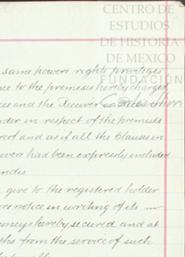 CENTRO DE
ESTUDIOS
DE HISTORIA
DE MEXICO
FUNDACIÓN
same powers rights privileges
ce to the premises hereby charged
ces and the Receiver
nder in respect of the premises
reof and as if all the Clauses in
ever had been expressly included
give to the registered holder
notice in writing of its in
moneys hereby secured and at
ths from the service of such